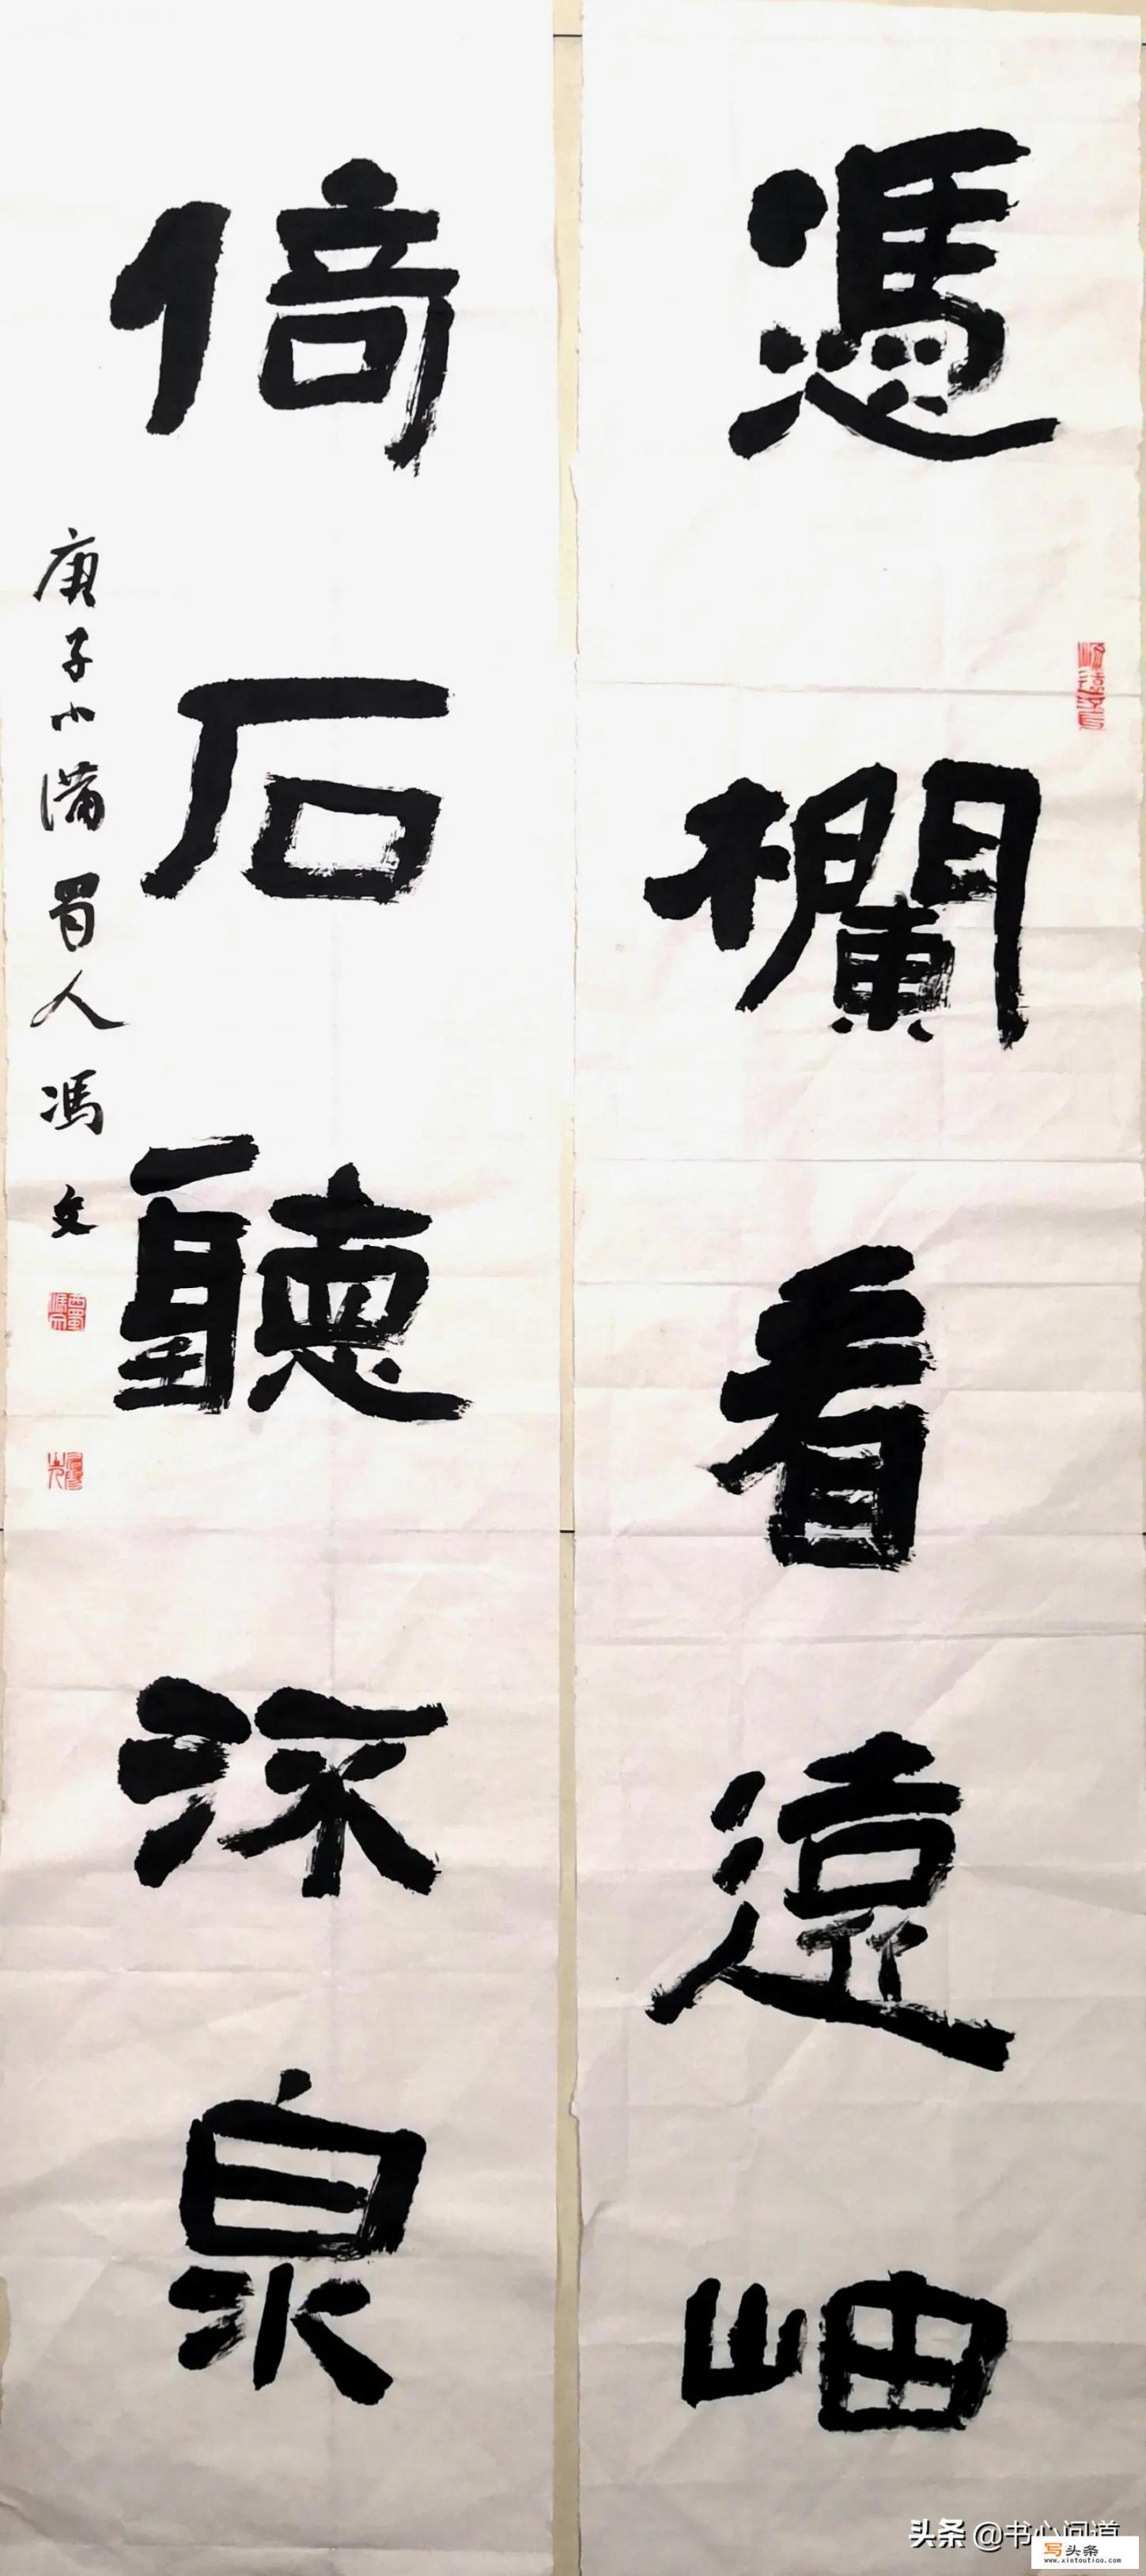 憑欄看遠岫
倚石聽深泉
庚子小滿蜀人馮文
头条 @书心问道
写头条
www.xietoutiao.com